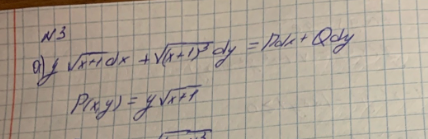 N3
a) y √(x+1) dx + √((x+1)³) dy = Pdx + Qdy
P(x,y) = y√(x+1)